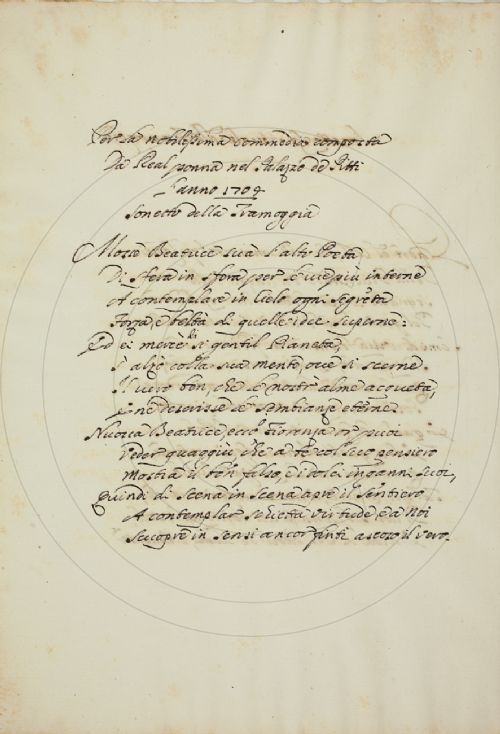 Per la nobilissima commedia composta
Da Real penna nel Palazzo de Pitti
L'anno 1704
Sonetto della Tramoggia
Mosse Beatrice sua l'alto Poeta
Di sfera in sfera per le vie più interne
A contemplare in Cielo ogni segreta
Forza, e beltà di quelle idee superne:
Ed ei mercè di gentil Pianeta,
S'alzò colla sua mente, ove si scerne
Il vero ben, che le nostr'alme acqueta,
E ne descrisse le sembianze eterne.
Nuova Beatrice, ecco Fiorenza or puoi
Veder quaggiù che a te col suo pensiero
Mostra il ben falso, e i dolci inganni suoi,
Quindi di scena in scena apre il sentiero
A contemplar virtude, e a noi
Scuopre in sensi ancor finti ascoso il vero.